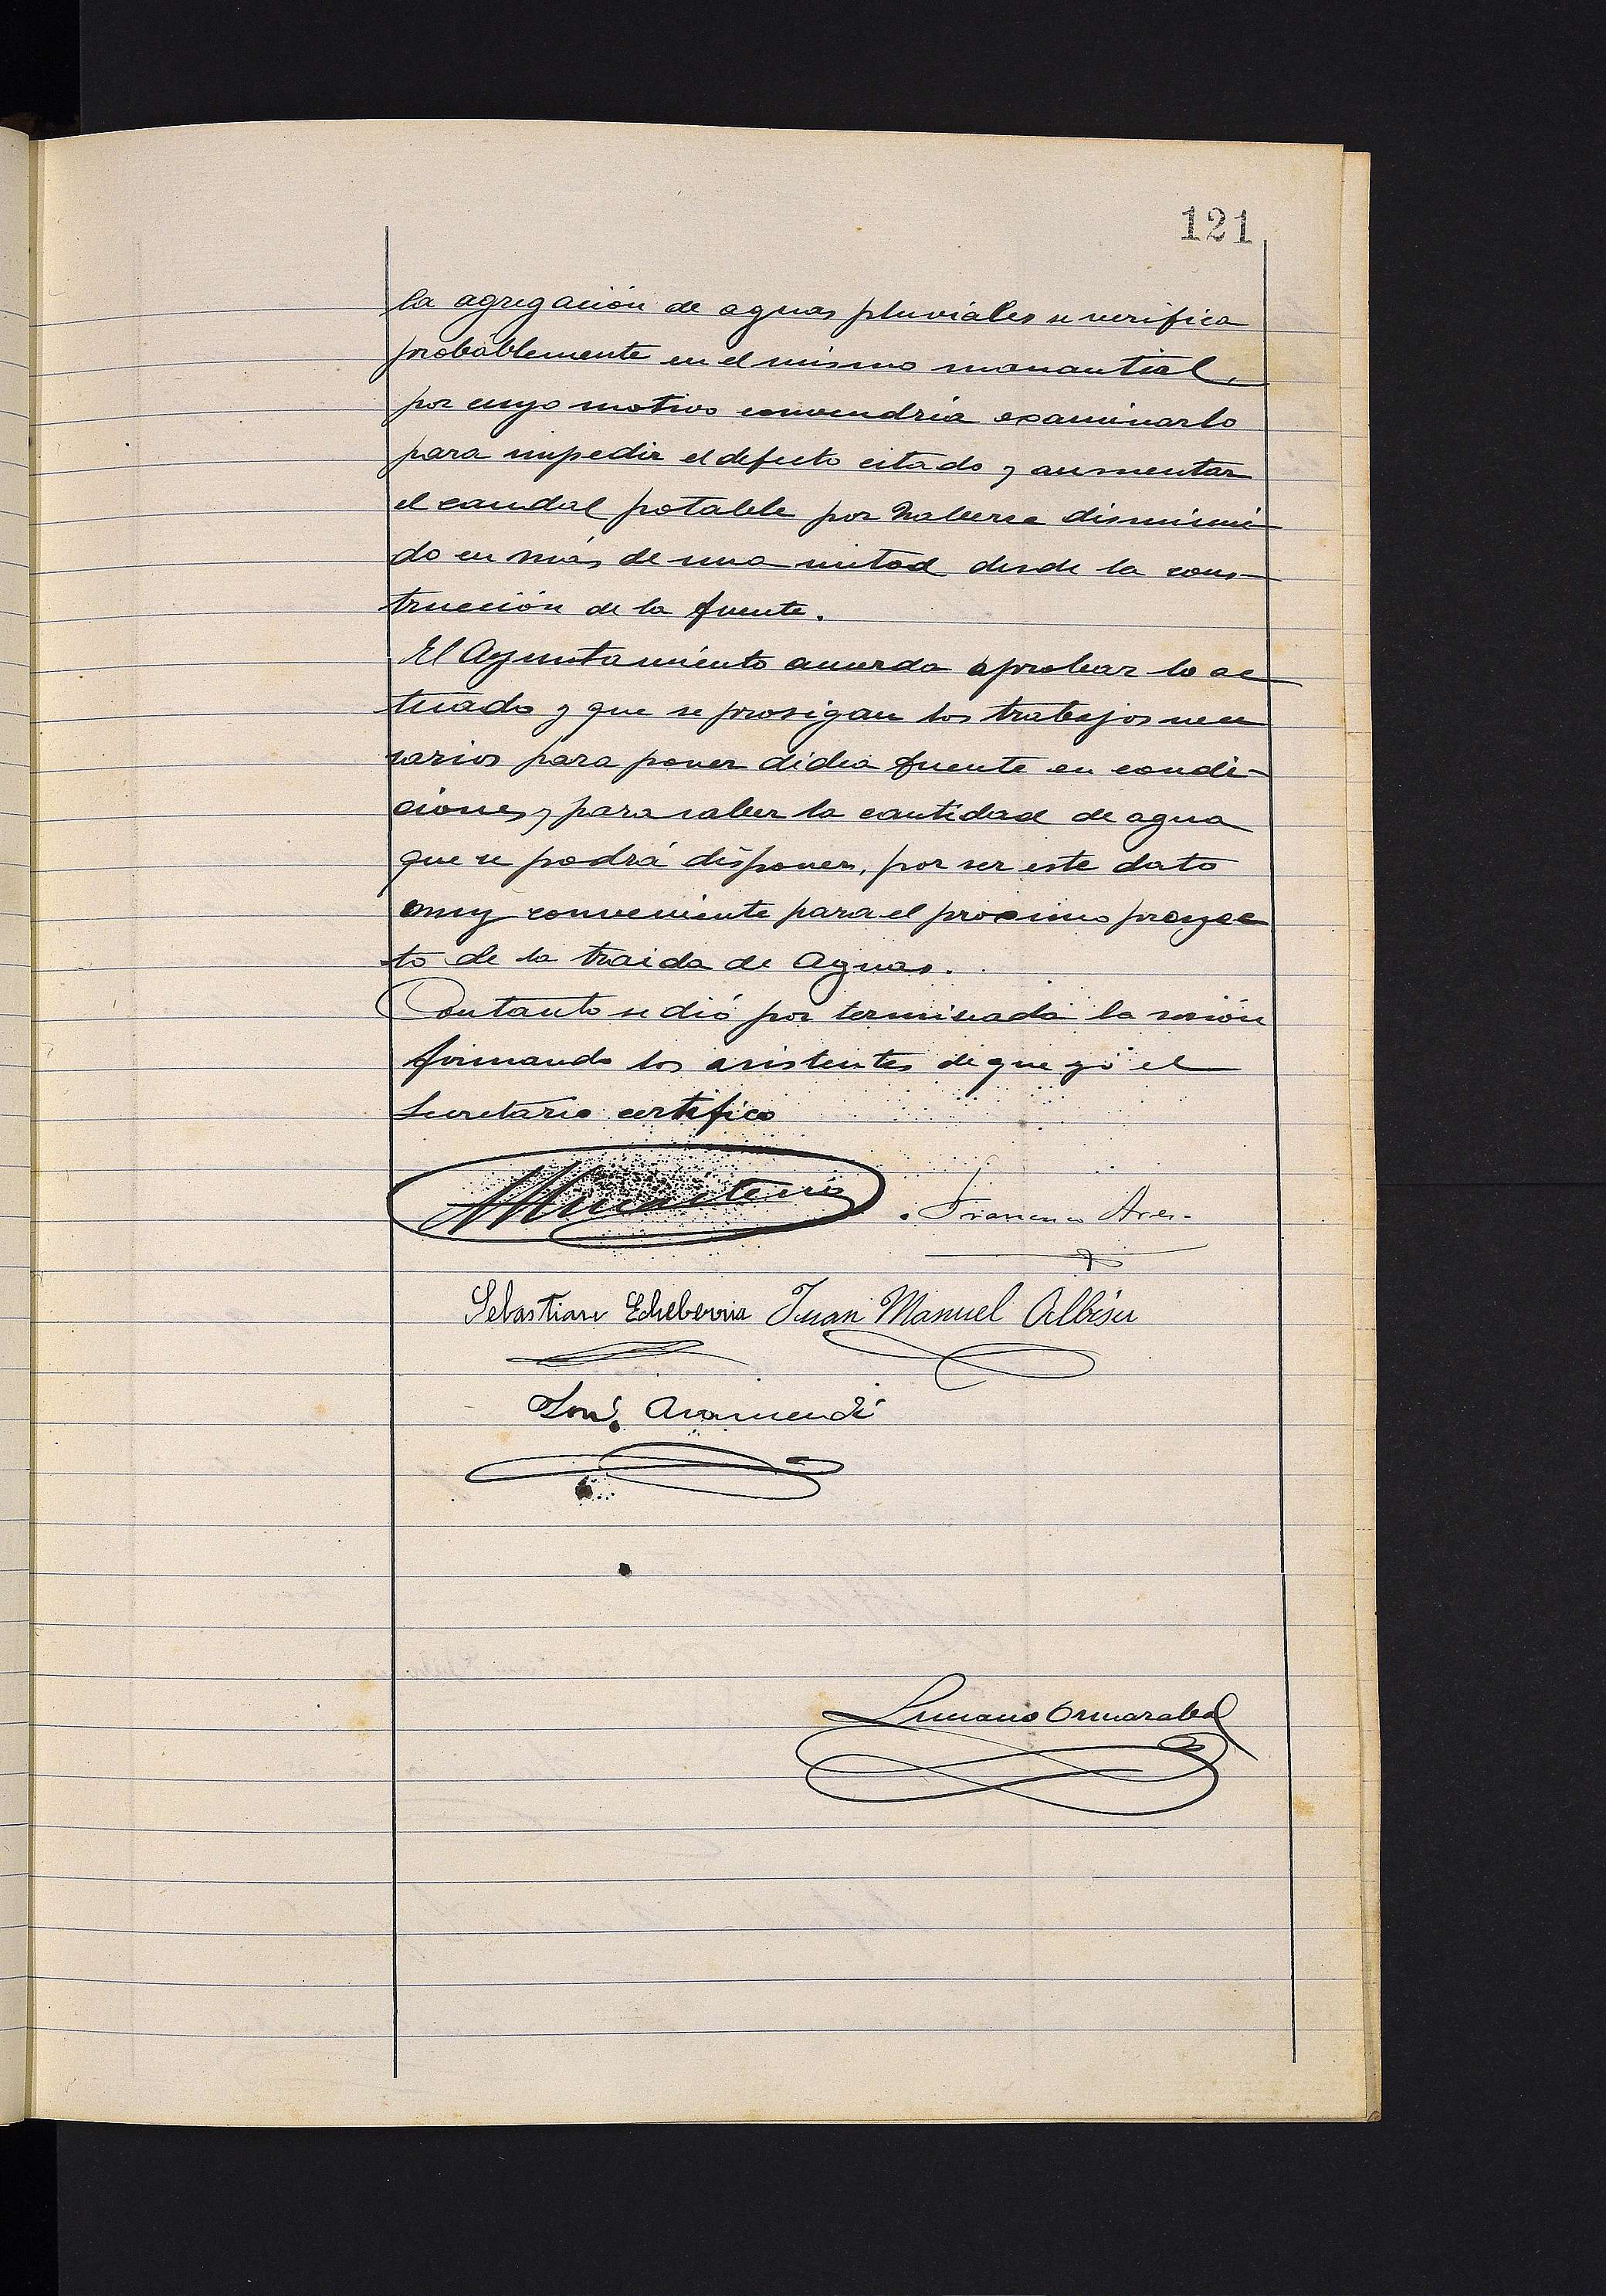 121
la agregación de aguas pluviales se verifica
probablemente en el mismo manantial,
por cuyo motivo convendría examinarlo
para impedir el defecto citado y aumentar
el caudal potable por haberse disminui-
do en más de una mitad desde la cons-
trucción de la fuente.
El Ayuntamiento acuerda aprobar lo ac
tuado y que se prosigan los trabajos nece
sarios para poner dicha fuente en condi-
ciones y para saber la cantidad de agua
que se podrá disponer, por ser este dato
muy conveniente para el proximo proyec
to de la traida de Aguas.
Con tanto se dió por terminada la sesión
firmando los asistentes de que yó el
Secretario certifico
Francisco Ares.
Sebastian Echeberria Juan Manuel Albisu
Aramendi
Luciano Ormazabal